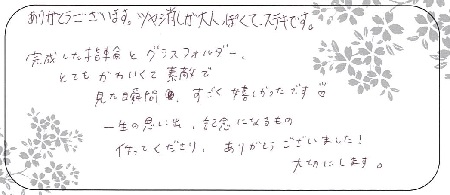 ありがとうございます。ツヤ消しが大人っぽくて、ステキです。
完成した指輪とグラスフォルダー、
とてもかわいくて素敵で
見た瞬間、すごく嬉しかったです
一生の思い出、記念になるもの
作ってくださり、ありがとうございました!
大切にします。